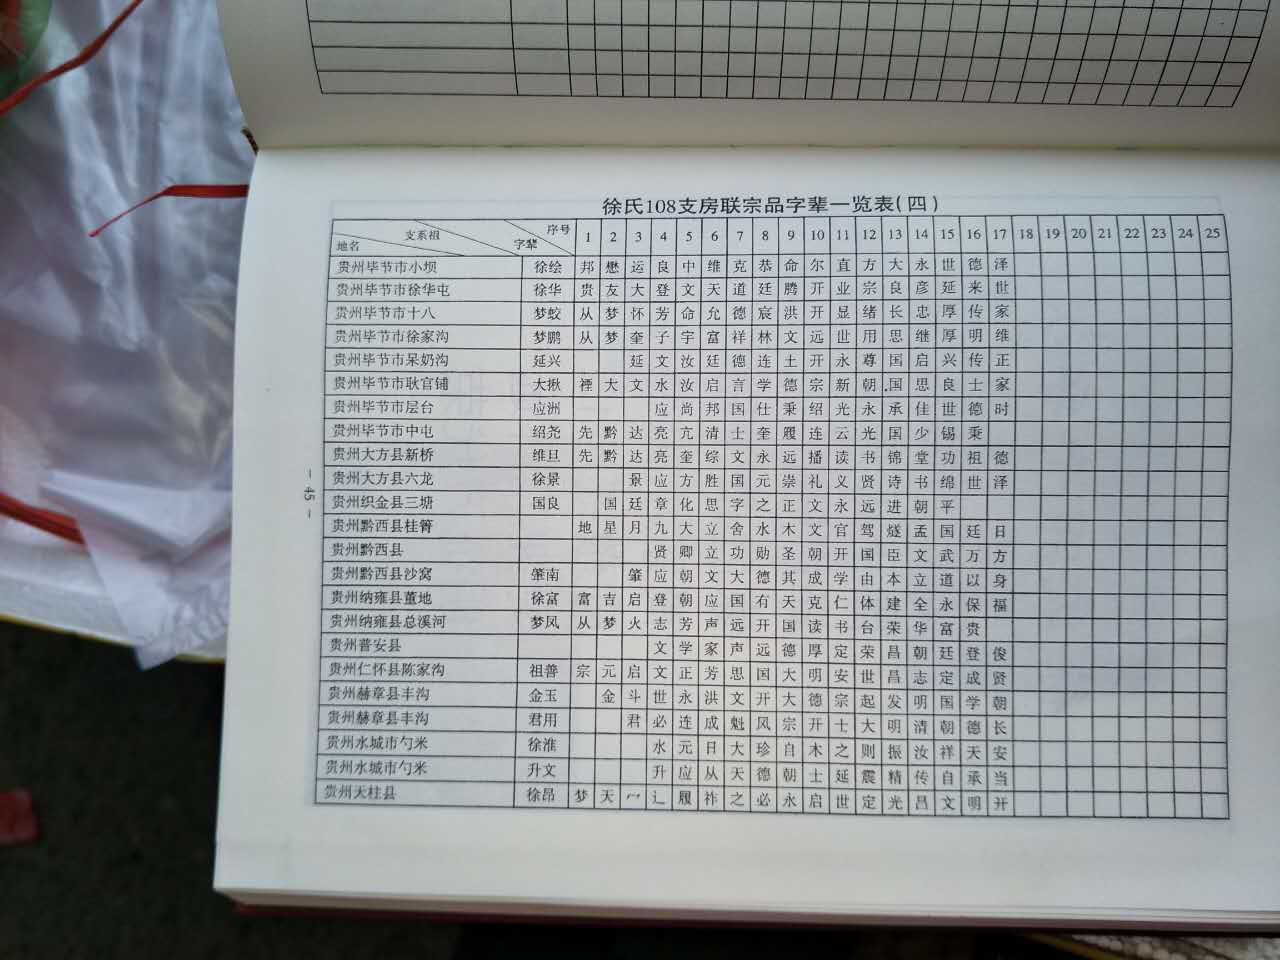 徐氏108支房联宗品字辈一览表(四)
地名 支系祖 字辈 序号 1 2 3 4 5 6 7 8 9 10 11 12 13 14 15 16 17 18 19 20 21 22 23 24 25
贵州毕节市小坝 徐绘 邦 懋 运 良 中 维 克 恭 命 尔 直 方 大 永 世 德 泽
贵州毕节市徐华屯 徐华 贵 友 大 登 文 天 道 廷 腾 开 业 宗 良 彦 延 来 世
贵州毕节市十八 梦蛟 从 梦 怀 芳 命 允 德 宸 洪 开 显 绪 长 忠 厚 传 家
贵州毕节市徐家沟 梦鹏 从 梦 奎 子 宇 富 祥 林 文 远 世 用 思 继 厚 明 维
贵州毕节市呆奶沟 延兴 延 文 汝 廷 德 连 土 开 永 尊 国 启 兴 传 正
贵州毕节市耿官铺 大揪 大 文 水 汝 启 言 学 德 宗 新 朝 国 思 良 士 家
贵州毕节市层台 应洲 应 尚 邦 国 仕 秉 绍 光 永 承 佳 世 德 时
贵州毕节市中屯 绍尧 先 黔 达 亮 亢 清 士 奎 履 连 云 光 国 少 锡 秉
贵州大方县新桥 维旦 先 黔 达 亮 奎 综 文 永 远 播 读 书 锦 堂 功 祖 德
贵州大方县六龙 徐景 景 应 方 胜 国 元 崇 礼 义 贤 诗 书 绵 世 泽
贵州织金县三塘 国良 国 廷 章 化 思 字 之 正 文 永 远 进 朝 平
贵州黔西县桂箐 地 星 月 九 大 立 舍 水 木 文 官 驾 燧 孟 国 廷 日
贵州黔西县 贤 卿 立 功 勋 圣 朝 开 国 臣 文 武 万 方
贵州黔西县沙窝 肇南 肇 应 朝 文 大 德 其 成 学 由 本 立 道 以 身
贵州纳雍县董地 徐富 富 吉 启 登 朝 应 国 有 天 克 仁 体 建 全 永 保 福
贵州纳雍县总溪河 梦凤 从 梦 火 志 芳 声 远 开 国 读 书 台 荣 华 富 贵
贵州普安县 文 学 家 声 远 德 厚 定 荣 昌 朝 廷 登 俊
贵州仁怀县陈家沟 祖善 宗 元 启 文 正 芳 思 国 大 明 安 世 昌 志 定 成 贤
贵州赫章县丰沟 金玉 金 斗 世 永 洪 文 开 大 德 宗 起 发 明 国 学 朝
贵州赫章县丰沟 君用 君 必 连 成 魁 风 宗 开 士 大 明 清 朝 德 长
贵州水城市勺米 徐淮 水 元 日 大 珍 自 木 之 则 振 汝 祥 天 安
贵州水城市勺米 升文 升 应 从 天 德 朝 士 延 震 精 传 自 承 当
贵州天柱县 徐昂 梦 天 宀 辶 履 祚 之 必 永 启 世 定 光 昌 文 明 开
－45－